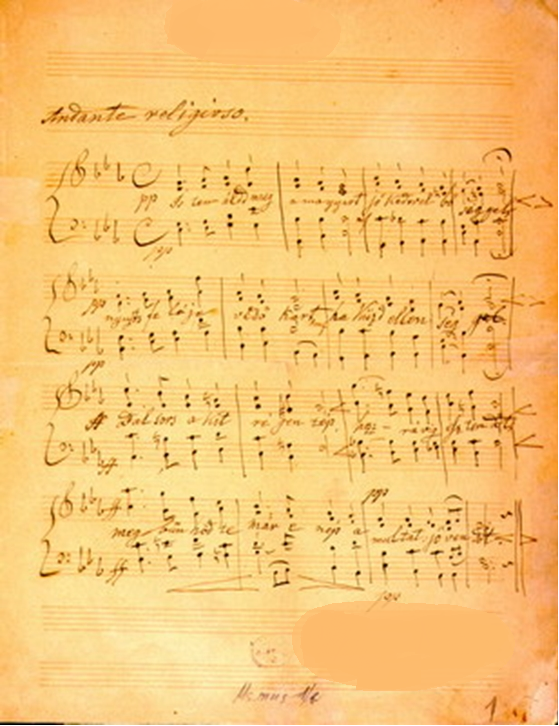 Andante religioso.
pp Is ten áldd meg a magyart jó kedvvel bő séggel
pp
pp nyujts fe léje védő kart, ha küzd ellen seg gel.
pp
ff Bal sors a kit ré gen tép, hoz – rá víg esz ten dőt
ff
pp
ff meg bün hőd te már e nép a multat, jöven dőt
ff
pp
Ms. mus.
1